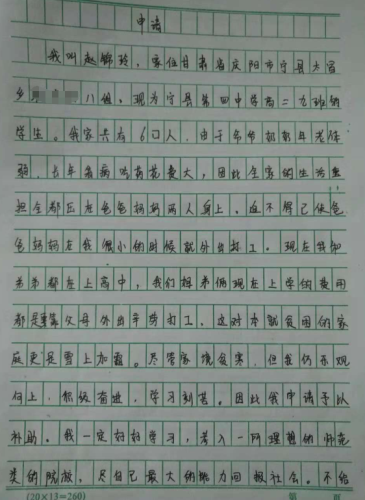 申请
我叫赵锦玲，家住甘肃省庆阳市宁县太昌
乡 八组，现为宁县第四中学高二九班的
学生。我家共有6口人，由于爷爷奶奶年老体
弱，长年看病吃药花费大，因此全家的生活重
担全都压在爸爸妈妈两人身上。迫不得已使爸
爸妈妈在我很小的时候就外出打工。现在我和
弟弟都在上高中，我们姐弟俩现在上学的费用
都是靠父母外出辛劳打工，这对本就贫困的家
庭更是雪上加霜。尽管家境贫寒，但我仍乐观
向上，积极奋进，学习刻苦。因此我申请予以
补助。我一定好好学习，考入一所理想的师范
类的院校，尽自己最大的能力回报社会。不给
(20×13=260) 第 页